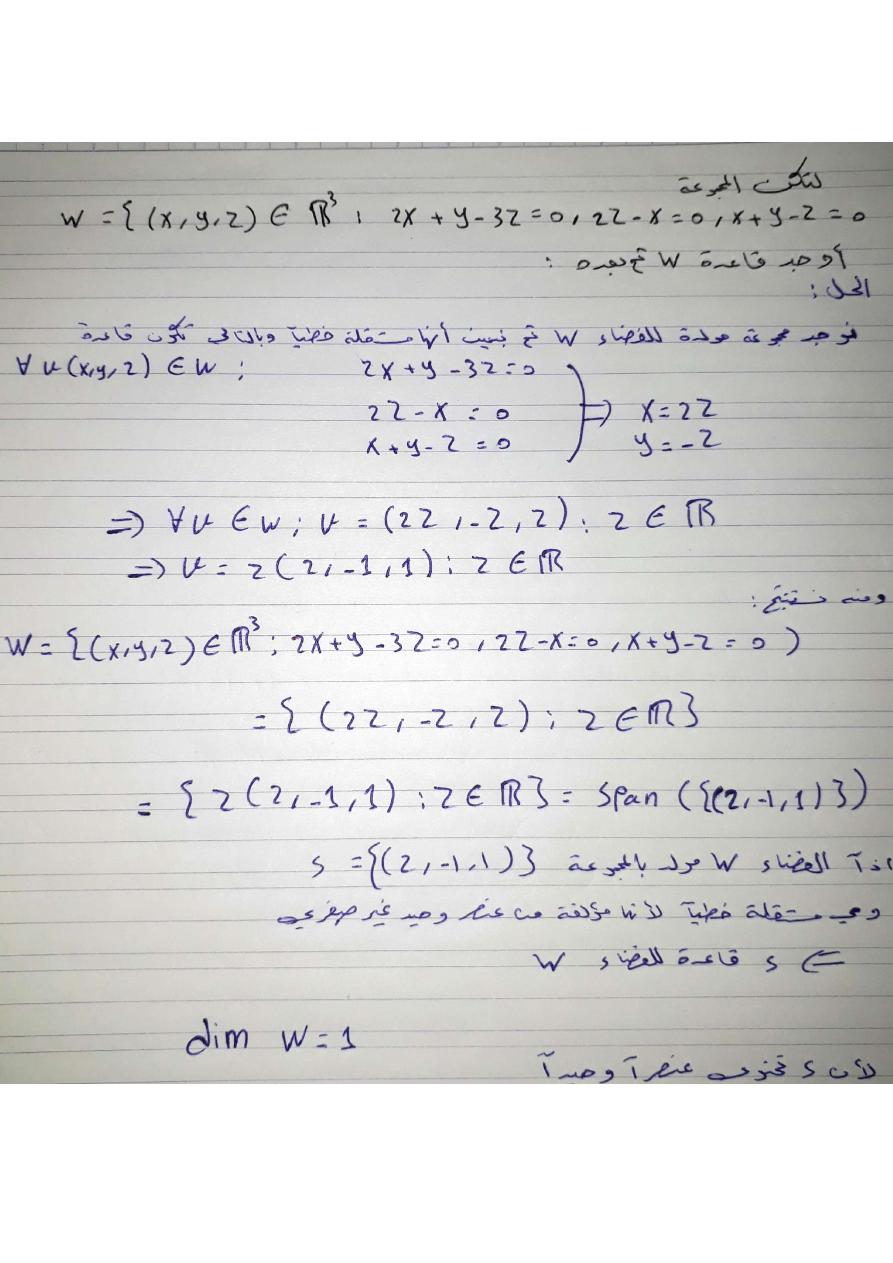 لتكن المجموعة
W = {(x, y, z) ∈ ℝ³ ; 2x + y - 3z = 0, 2z - x = 0, x + y - z = 0
أوجد قاعدة W ثم بعده :
الحل :
نوجد مجموعة مولدة للفضاء W ثم نبين أنها مستقلة خطياً وبالتالي تكون قاعدة
∀ v(x, y, z) ∈ W ; 2x + y - 3z = 0
2z - x = 0 ⇒ x = 2z
x + y - z = 0 y = -z
⇒ ∀ v ∈ W ; v = (2z, -z, z) : z ∈ ℝ
⇒ v = z(2, -1, 1) ; z ∈ ℝ
ومنه نستنتج :
W = {(x, y, z) ∈ ℝ³ ; 2x + y - 3z = 0, 2z - x = 0, x + y - z = 0 )
= {(2z, -z, z) ; z ∈ ℝ}
= {z(2, -1, 1) ; z ∈ ℝ} = Span ({(2, -1, 1)})
اذاً الفضاء W مولد بالمجموعة S = {(2, -1, 1)}
وهي مستقلة خطياً لأنها مؤلفة من عنصر وحيد غير صفري
⇐ S قاعدة للفضاء W
dim W = 1
لأن S تحتوي عنصراً وحيداً